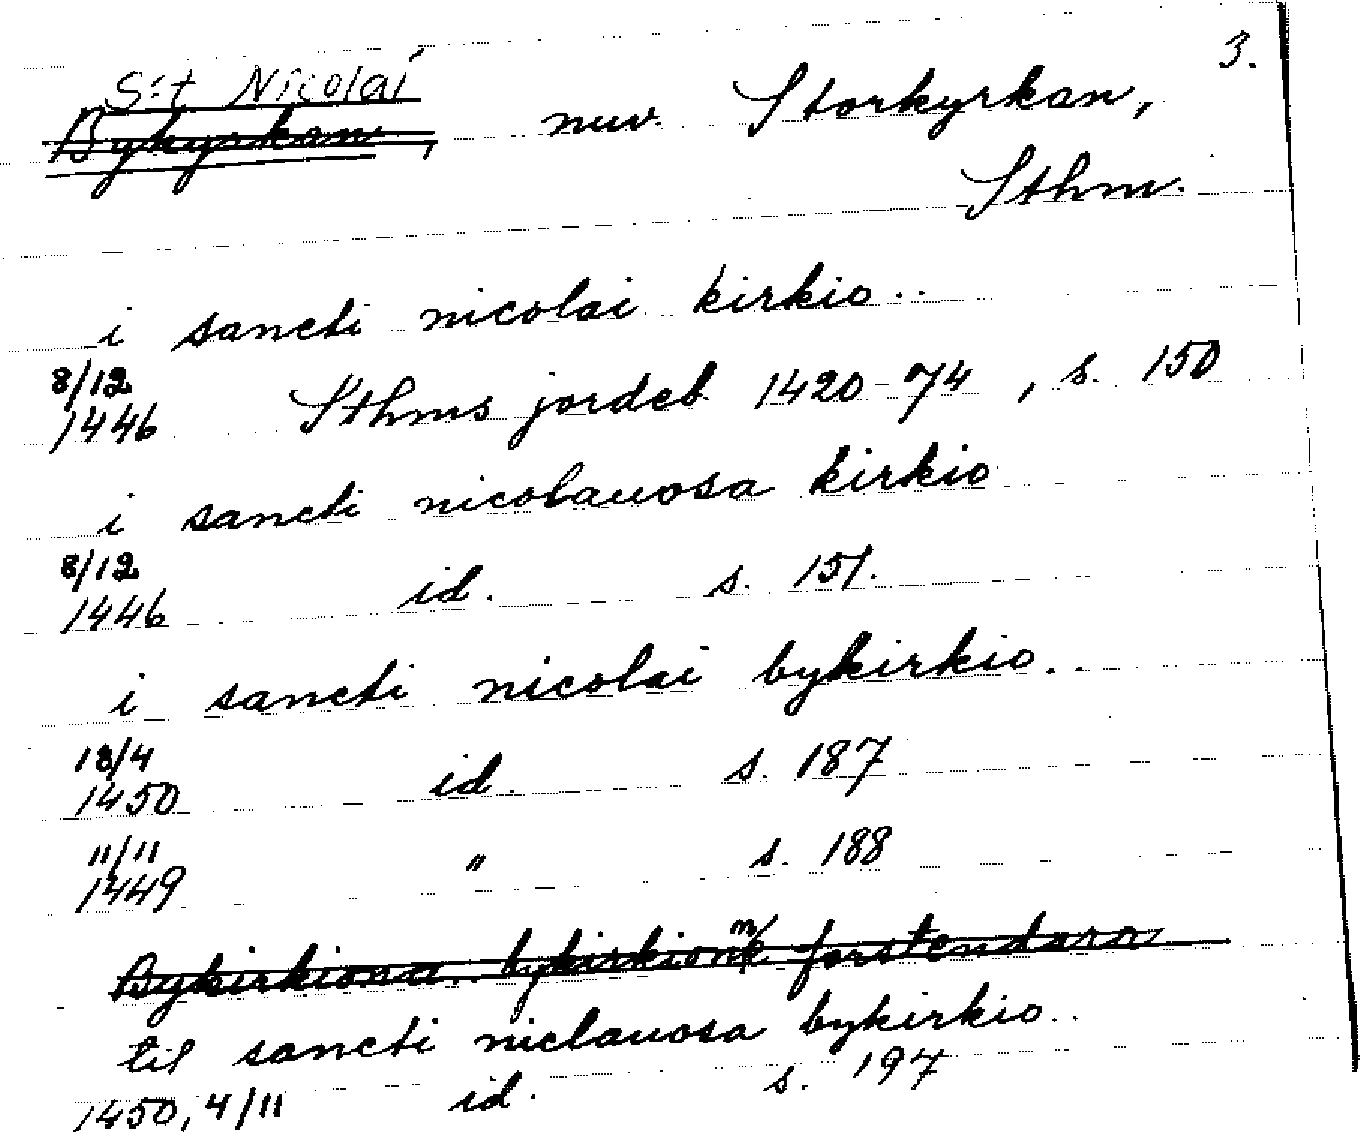 3.
S:t Nicolai
Bykyrkan, nuv. Storkyrkan,
Sthm.
i sancti nicolai kirkio..
8/12
1446 Sthms jordeb. 1420-74, s. 150
i sancti nicolauosa kirkio
8/12
1446 id. s. 151.
i sancti nicolai bykirkio..
18/4
1450 id. s. 187
11/11
1449 " s. 188
Bykirkiona.. bykirkionn forstendara
til sancti niclauosa bykirkio..
1450, 4/11 id. s. 197